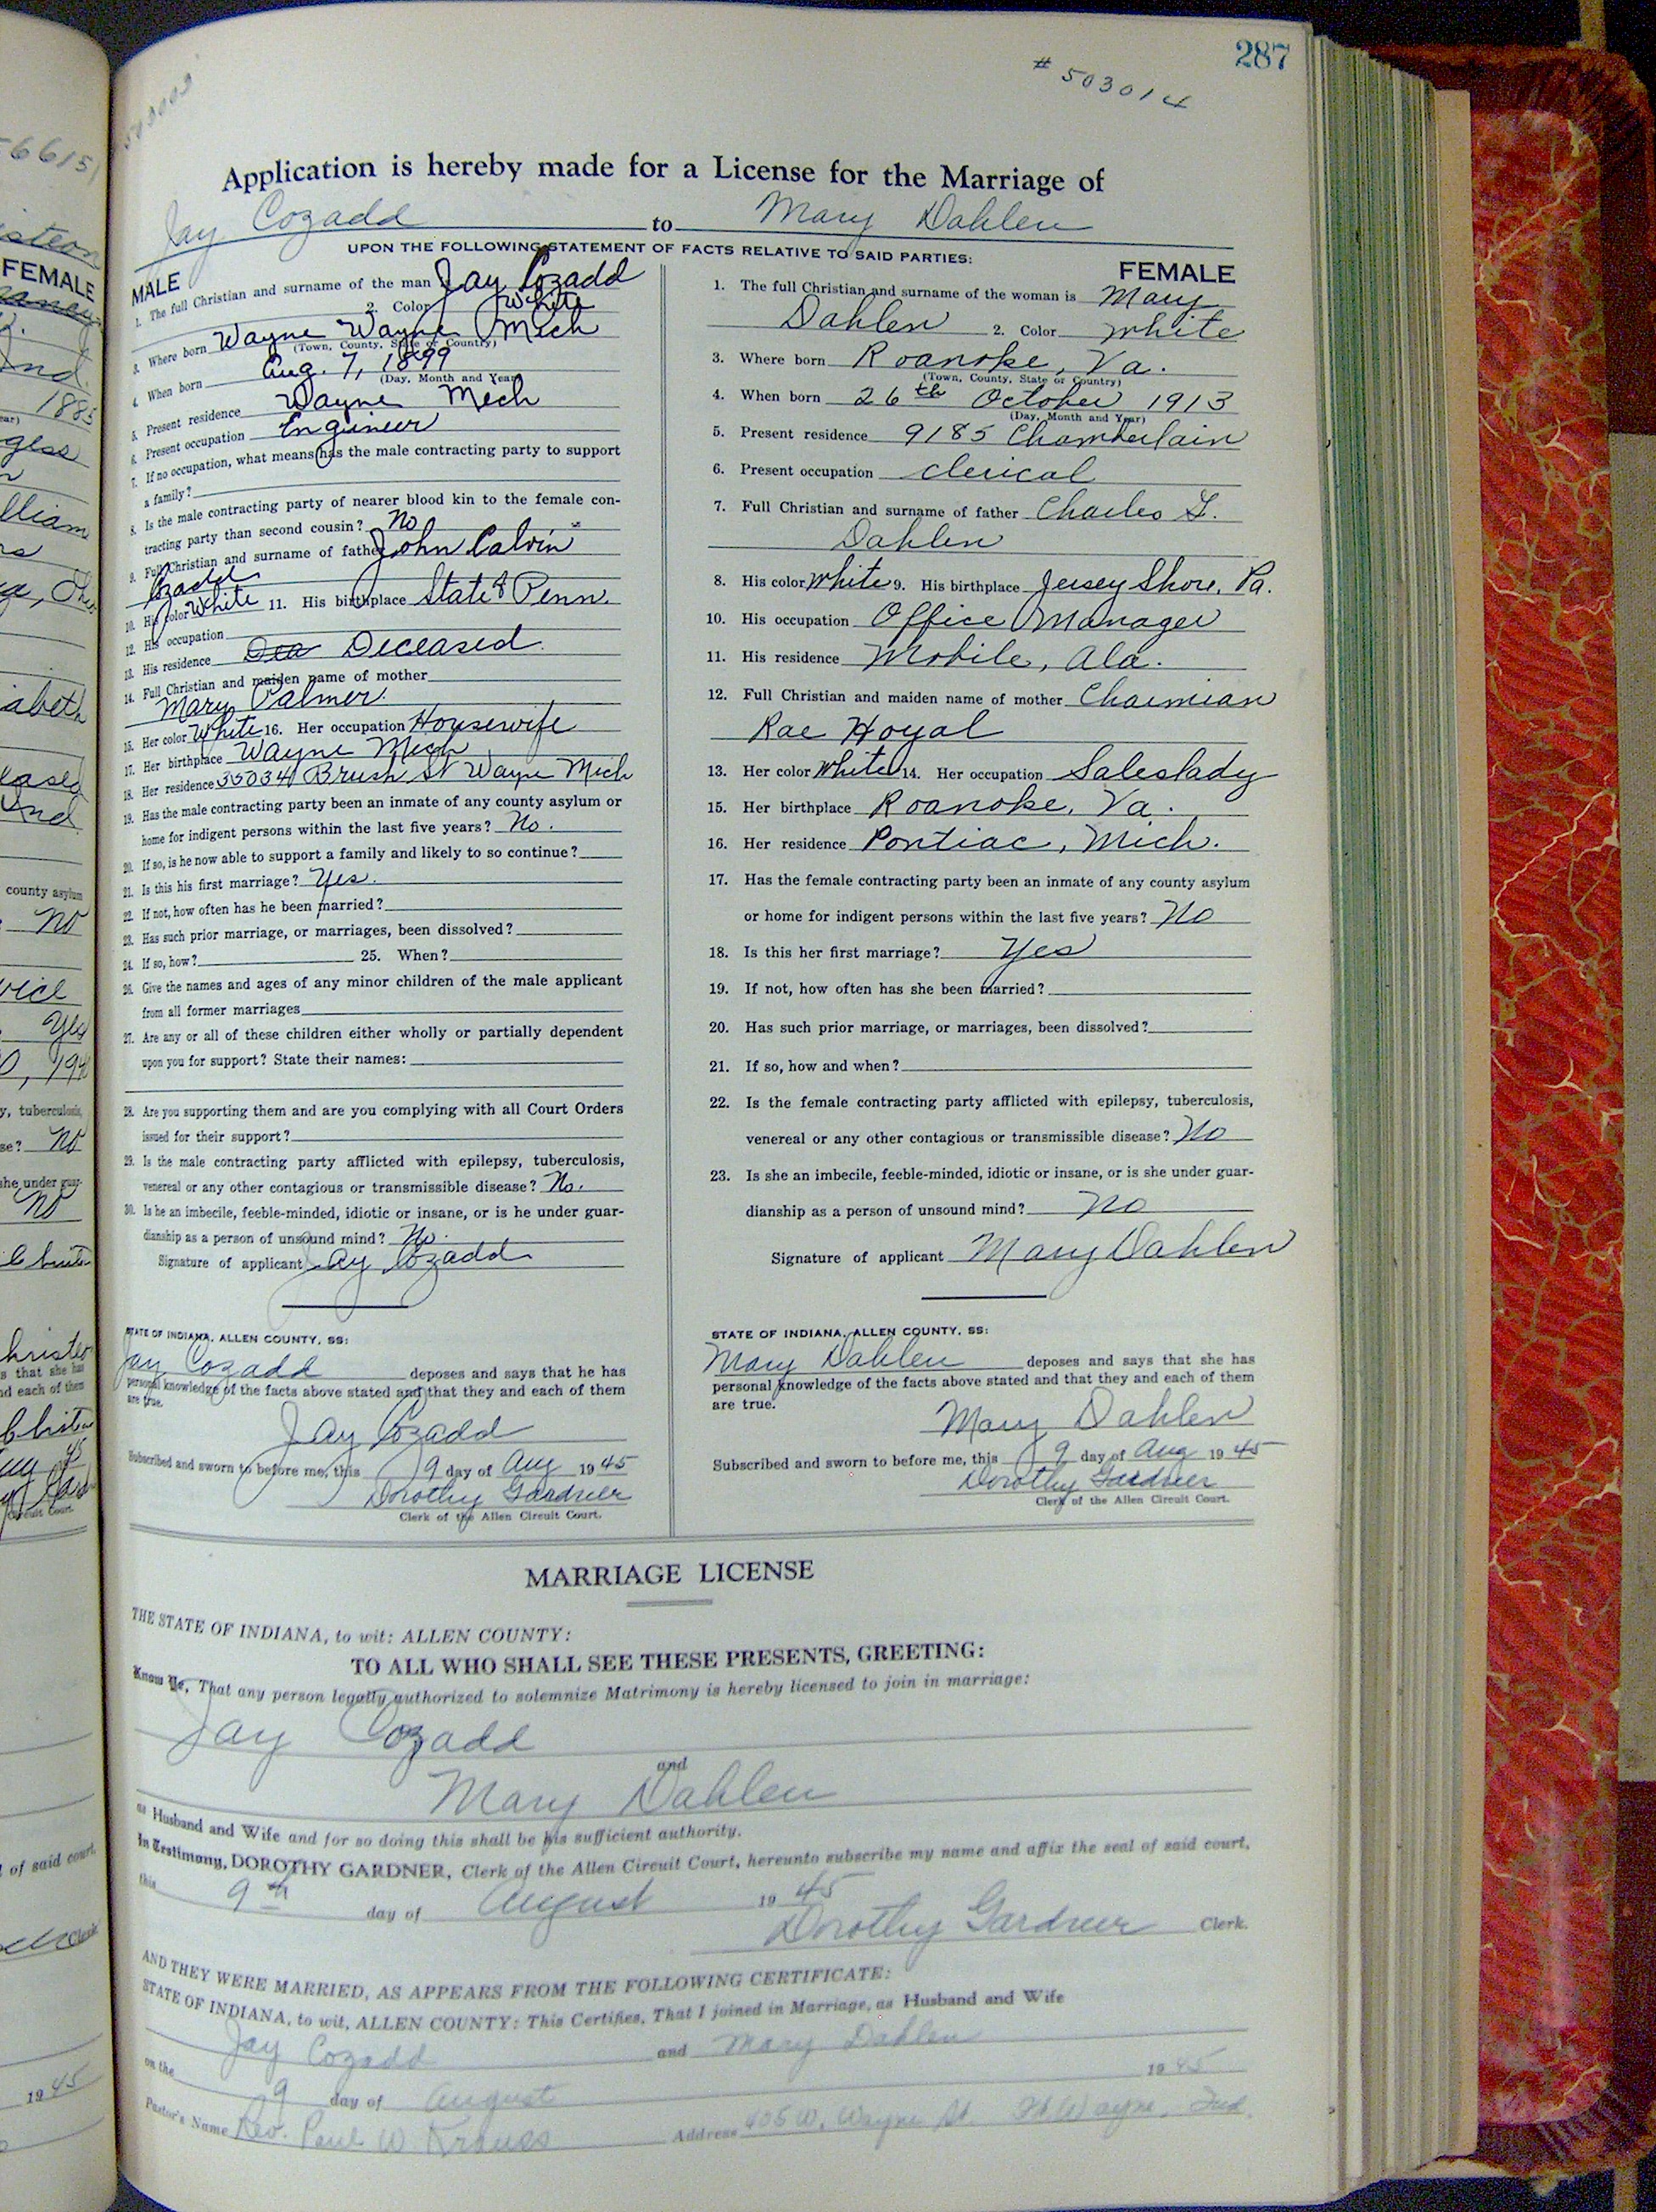 287
# 503014
Application is hereby made for a License for the Marriage of
Jay Cozadd to Mary Dahlen
UPON THE FOLLOWING STATEMENT OF FACTS RELATIVE TO SAID PARTIES:
MALE
1. The full Christian and surname of the man Jay Cozadd
2. Color White
3. Where born Wayne Wayne Mich
(Town, County, State or Country)
4. When born Aug. 7, 1899
(Day, Month and Year)
5. Present residence Wayne Mich
6. Present occupation Engineer
7. If no occupation, what means has the male contracting party to support
a family?
8. Is the male contracting party of nearer blood kin to the female con-
tracting party than second cousin? No
9. Full Christian and surname of father John Calvin
Cozadd
10. His color White 11. His birthplace State of Penn.
12. His occupation
13. His residence Dea Deceased.
14. Full Christian and maiden name of mother
Mary Palmer.
15. Her color White 16. Her occupation Housewife
17. Her birthplace Wayne Mich
18. Her residence 35034 Brush St Wayne Mich
19. Has the male contracting party been an inmate of any county asylum or
home for indigent persons within the last five years? No.
20. If so, is he now able to support a family and likely to so continue?
21. Is this his first marriage? Yes.
22. If not, how often has he been married?
23. Has such prior marriage, or marriages, been dissolved?
24. If so, how? 25. When?
26. Give the names and ages of any minor children of the male applicant
from all former marriages
27. Are any or all of these children either wholly or partially dependent
upon you for support? State their names:
28. Are you supporting them and are you complying with all Court Orders
issued for their support?
29. Is the male contracting party afflicted with epilepsy, tuberculosis,
venereal or any other contagious or transmissible disease? No.
30. Is he an imbecile, feeble-minded, idiotic or insane, or is he under guar-
dianship as a person of unsound mind? No.
Signature of applicant Jay Cozadd
STATE OF INDIANA, ALLEN COUNTY, SS:
Jay Cozadd deposes and says that he has
personal knowledge of the facts above stated and that they and each of them
are true.
Jay Cozadd
Subscribed and sworn to before me, this 9 day of Aug 1945
Dorothy Gardner
Clerk of the Allen Circuit Court.
FEMALE
1. The full Christian and surname of the woman is Mary
Dahlen 2. Color White
3. Where born Roanoke, Va.
(Town, County, State or Country)
4. When born 26th October 1913
(Day, Month and Year)
5. Present residence 9185 Chamberlain
6. Present occupation Clerical
7. Full Christian and surname of father Charles L.
Dahlen
8. His color White 9. His birthplace Jersey Shore, Pa.
10. His occupation Office Manager
11. His residence Mobile, Ala.
12. Full Christian and maiden name of mother Charmian
Rae Hoyal
13. Her color White 14. Her occupation Saleslady
15. Her birthplace Roanoke, Va.
16. Her residence Pontiac, Mich.
17. Has the female contracting party been an inmate of any county asylum
or home for indigent persons within the last five years? No
18. Is this her first marriage? Yes
19. If not, how often has she been married?
20. Has such prior marriage, or marriages, been dissolved?
21. If so, how and when?
22. Is the female contracting party afflicted with epilepsy, tuberculosis,
venereal or any other contagious or transmissible disease? No
23. Is she an imbecile, feeble-minded, idiotic or insane, or is she under guar-
dianship as a person of unsound mind? No
Signature of applicant Mary Dahlen
STATE OF INDIANA, ALLEN COUNTY, SS:
Mary Dahlen deposes and says that she has
personal knowledge of the facts above stated and that they and each of them
are true.
Mary Dahlen
Subscribed and sworn to before me, this 9 day of Aug 1945
Dorothy Gardner
Clerk of the Allen Circuit Court.
MARRIAGE LICENSE
THE STATE OF INDIANA, to wit: ALLEN COUNTY:
TO ALL WHO SHALL SEE THESE PRESENTS, GREETING:
Know Ye, That any person legally authorized to solemnize Matrimony is hereby licensed to join in marriage:
Jay Cozadd
and
Mary Dahlen
as Husband and Wife and for so doing this shall be his sufficient authority.
In Testimony, DOROTHY GARDNER, Clerk of the Allen Circuit Court, hereunto subscribe my name and affix the seal of said court,
this 9th day of August 1945
Dorothy Gardner Clerk.
AND THEY WERE MARRIED, AS APPEARS FROM THE FOLLOWING CERTIFICATE:
STATE OF INDIANA, to wit, ALLEN COUNTY: This Certifies, That I joined in Marriage, as Husband and Wife
Jay Cozadd and Mary Dahlen
on the 9 day of August 1945
Pastor's Name Rev. Paul W. Krauss Address 405 W. Wayne St. Ft Wayne, Ind.